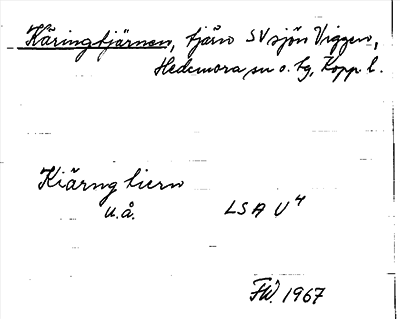 Käringtjärnen, tjärn SV sjön Viggen,
Hedemora sn o. tg, Kopp l.
Kiärng tiern
u.å. LSA U4
FW. 1967